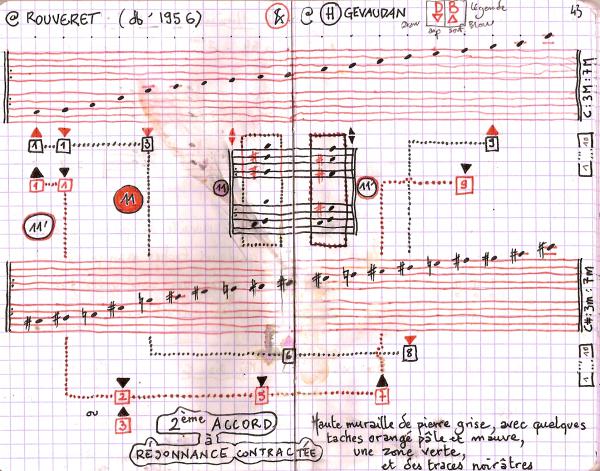 @ ROUVERET (db '1956)
& @ H GEVAUDAN
D B
Légende
43
C:3M:7M
1 1 3
9
10
1
1 1
11
11
11'
9
11'
C#:3m:7m
6
8
10
1
2 5 7
ou 3
2ème ACCORD
à
RÉJONNANCE CONTRACTÉE
Haute muraille de pierre grise, avec quelques
taches orange pâle et mauve,
une zone verte,
et des traces noirâtres